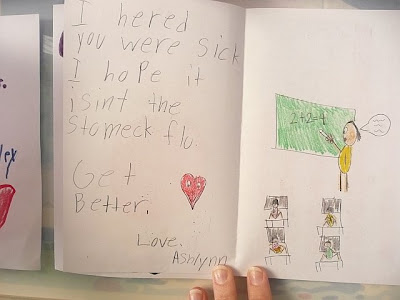 I hered
you were sick
I hope it
isint the
Stomeck flu.
Get
Better.
Love,
Ashlynn
2+2=4
lex